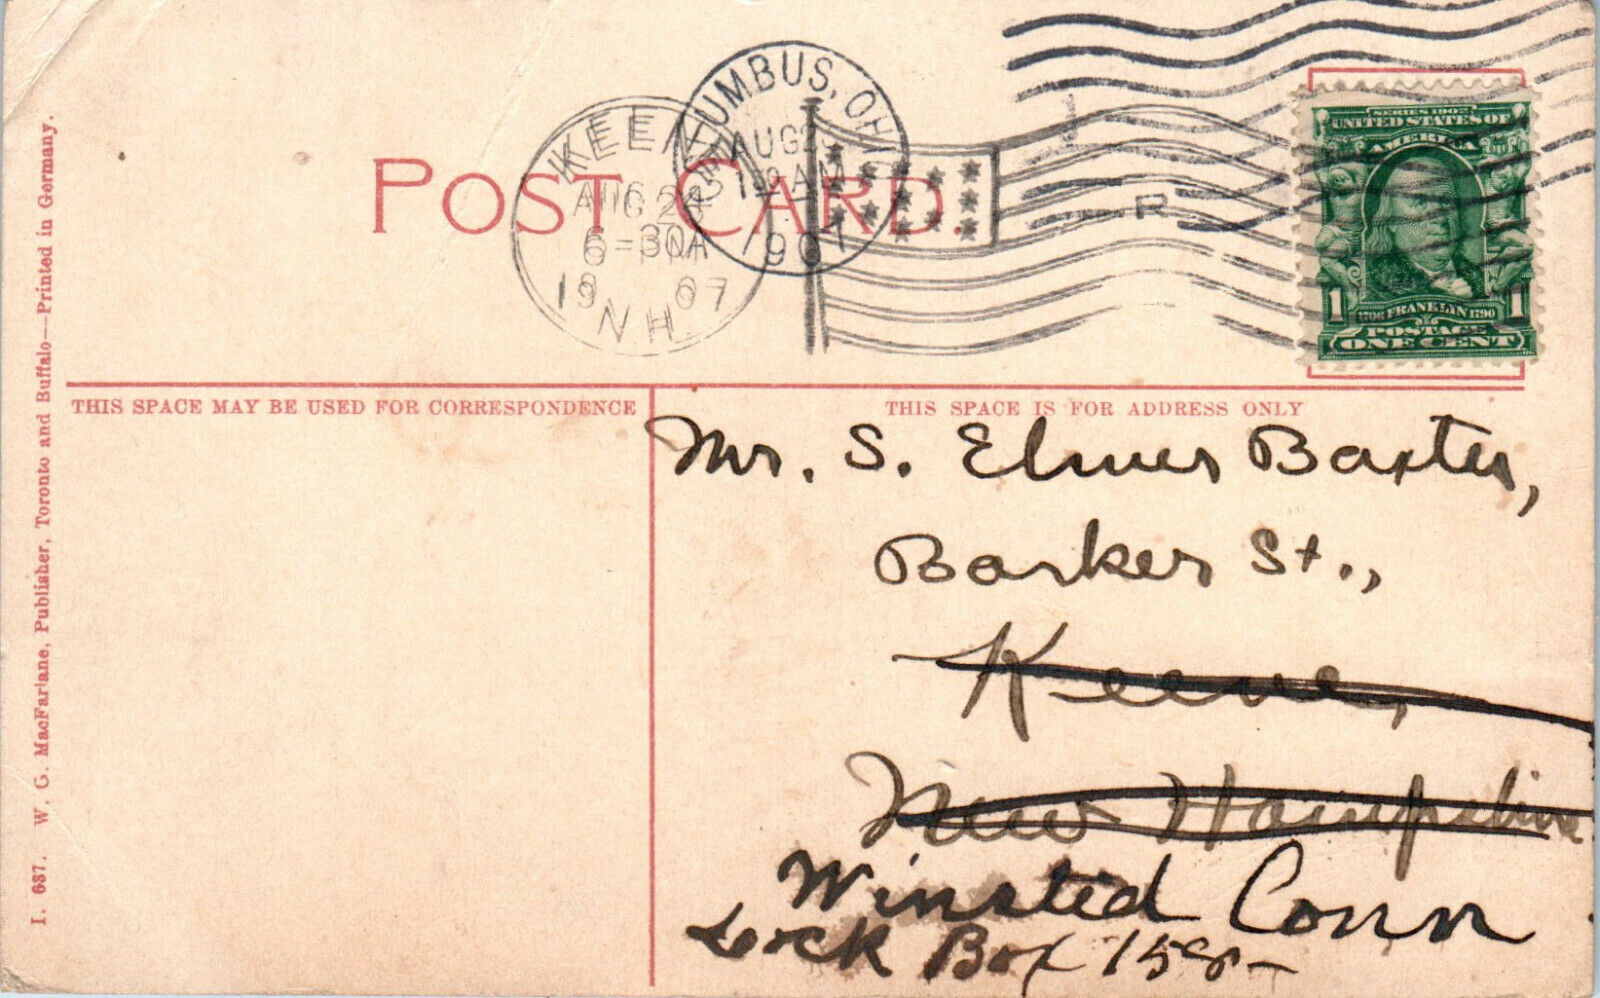 POST CARD.
COLUMBUS, OHIO
AUG 2
12 AM
1907
KEENE
AUG 24
6-30A
1907
N.H.
R
SERIES 1902
UNITED STATES OF
AMERICA
1 1
1706 FRANKLIN 1790
POSTAGE
ONE CENT
THIS SPACE MAY BE USED FOR CORRESPONDENCE
THIS SPACE IS FOR ADDRESS ONLY
Mr. S. Elmer Baxter,
Barker St.,
Keene,
New Hampshire
Winsted Conn
Lock Box
I. 637. W. G. MacFarlane, Publisher, Toronto and Buffalo—Printed in Germany.